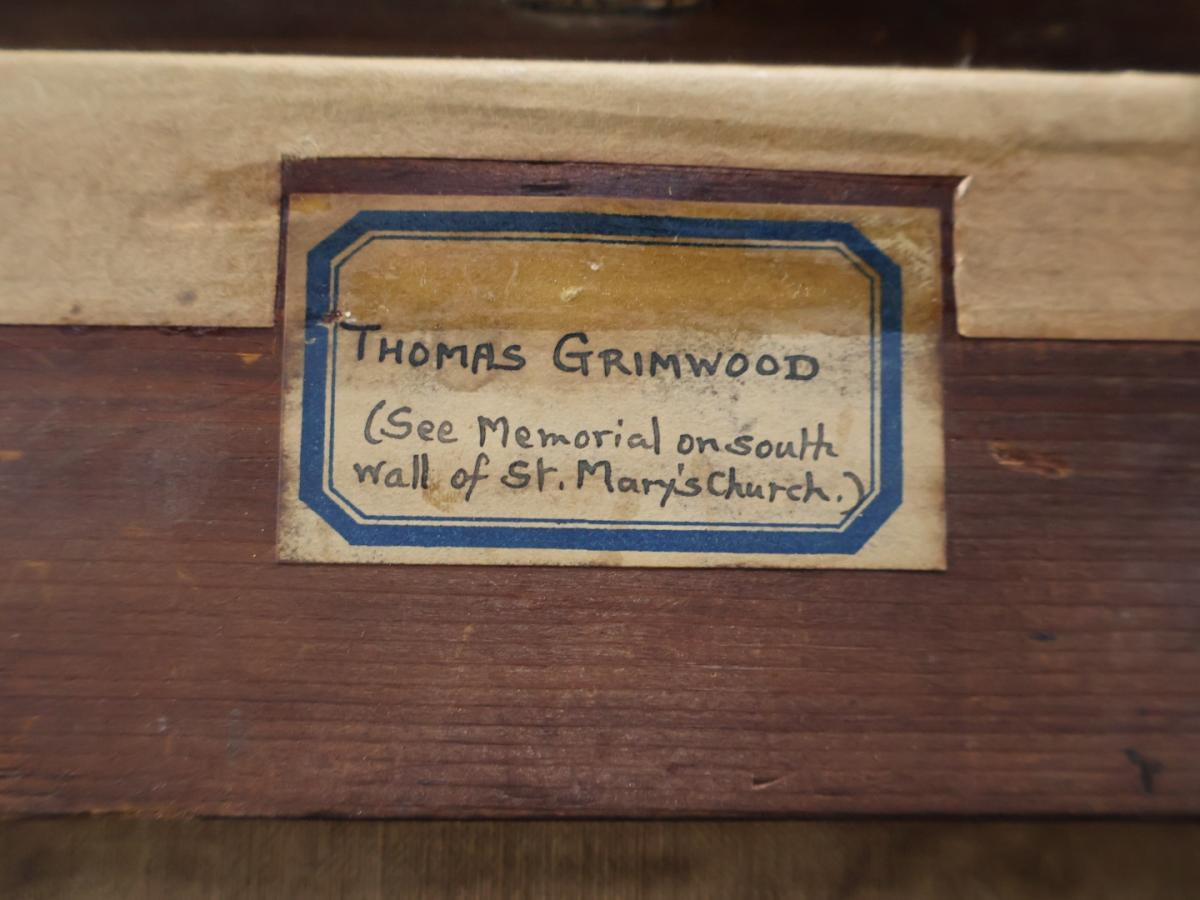 THOMAS GRIMWOOD
(See Memorial on south
wall of St. Mary's Church.)